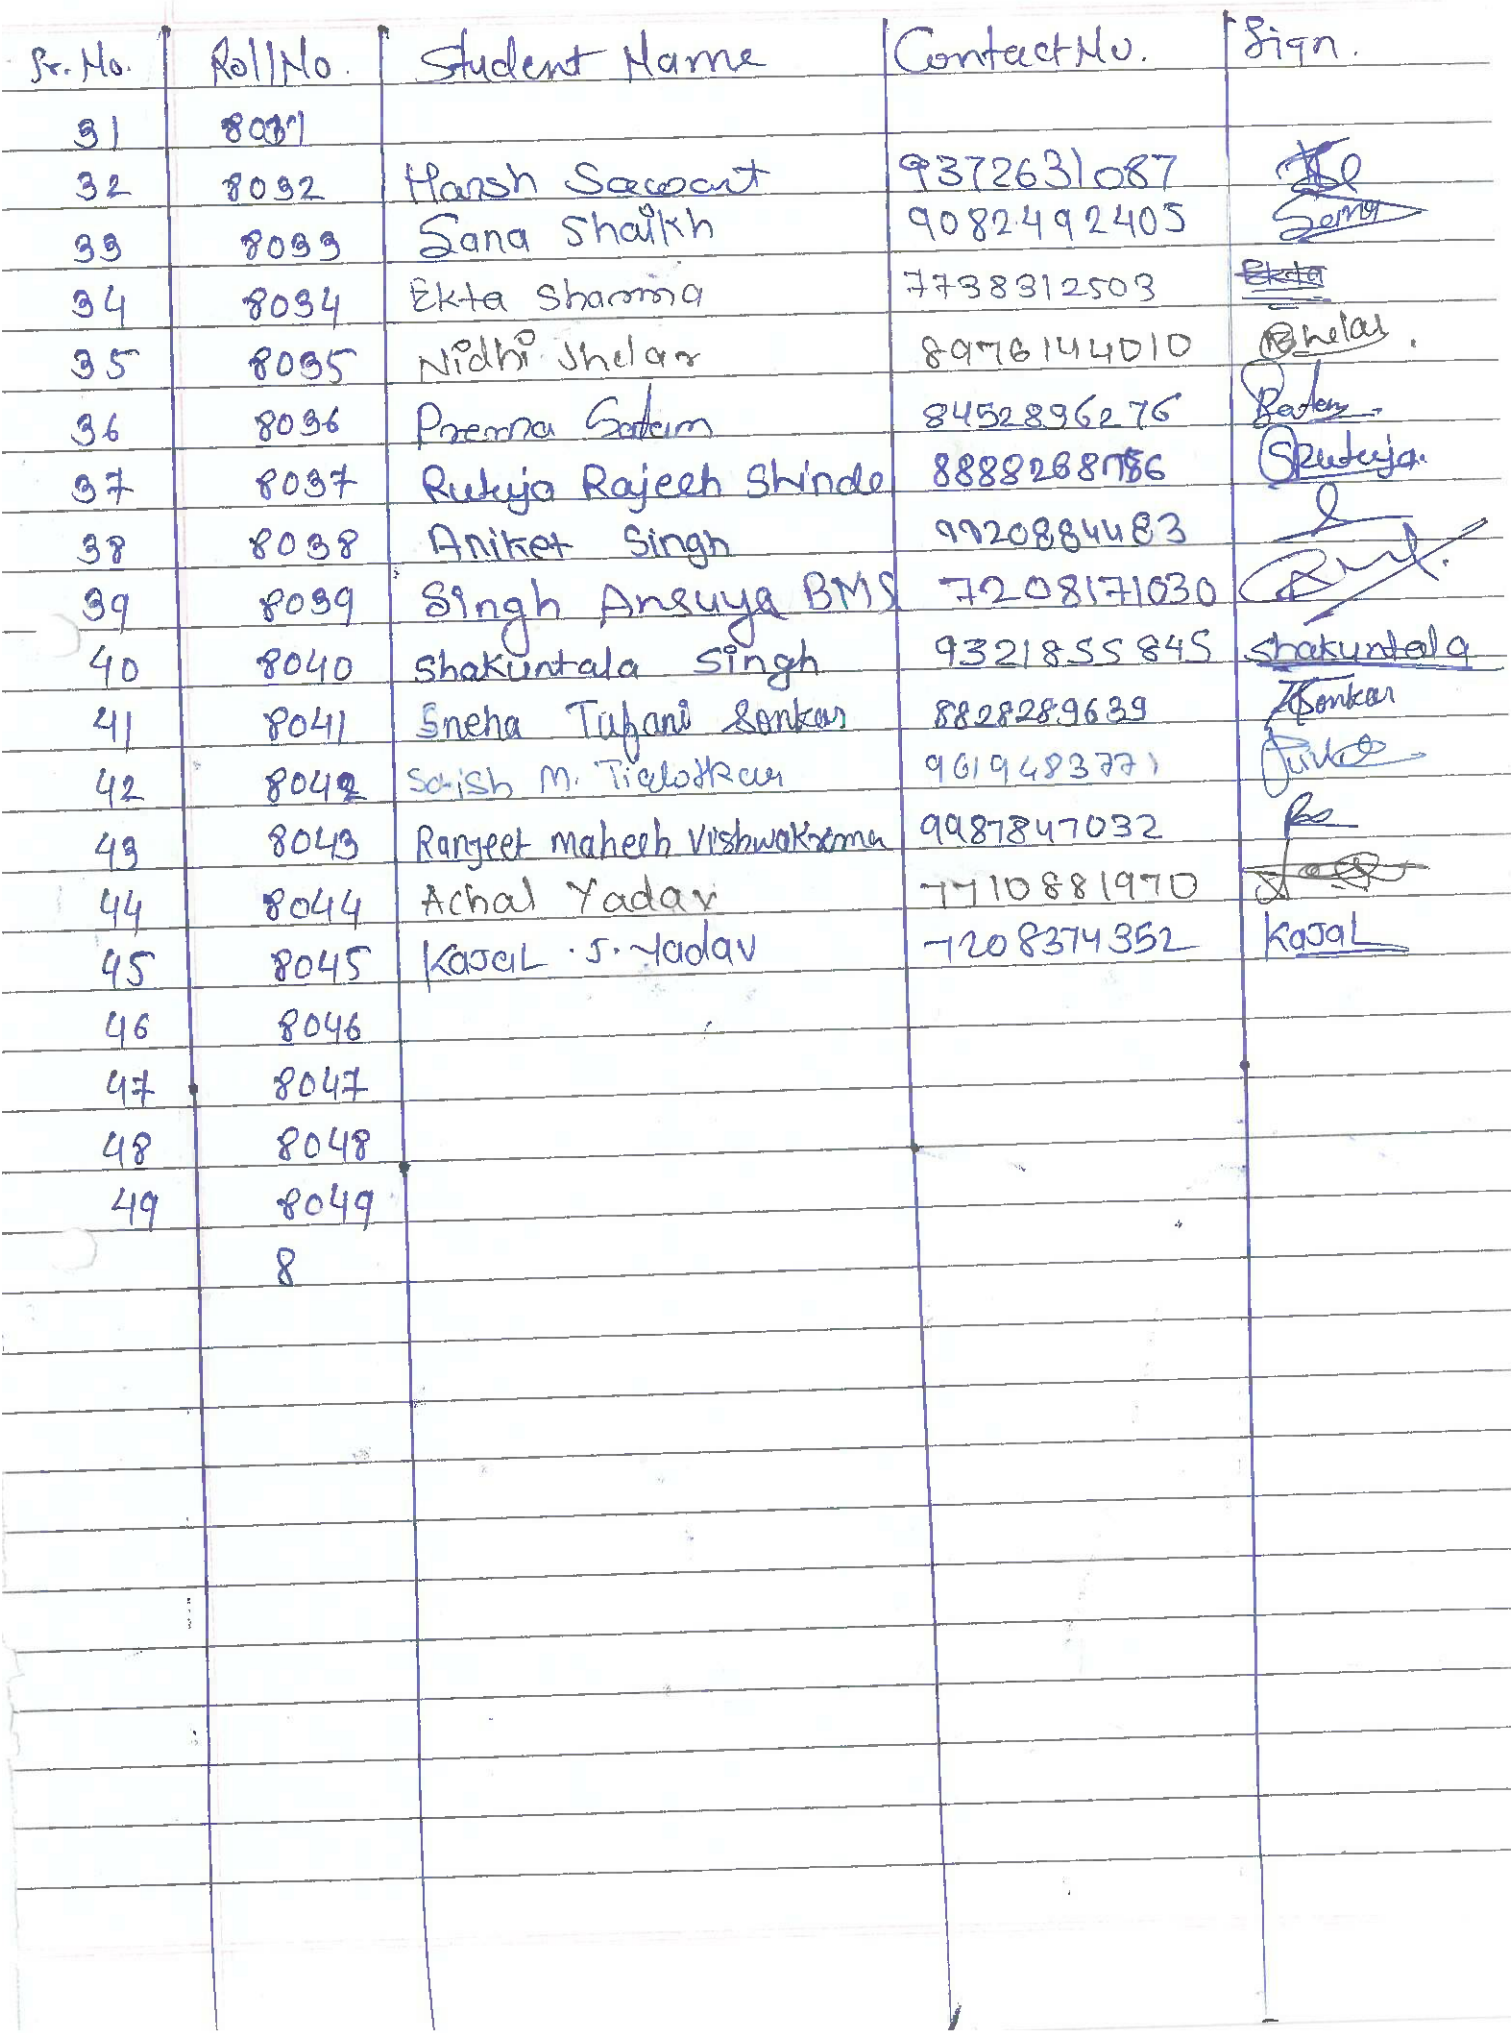 Sr. No. Roll No. Student Name Contact No. Sign.
31 8031
32 8032 Harsh Sawant 9372631087
33 8033 Sana Shaikh 9082492405 Sana
34 8034 Ekta Sharma 7738312503 Ekta
35 8035 Nidhi Shelar 8976144010 Shelar.
36 8036 Prerna Satam 8452896276
37 8037 Rutuja Rajesh Shinde SRutuja.
38 8038 Aniket Singh 9920884483
39 8039 Singh Ansuya BMS 7208171030
40 8040 Shakuntala Singh 9321855845 Shakuntala
41 8041 Sneha Tufani Sonkar 8828289639 Sonkar
42 8042 Satish M. 9619483771
43 8043 Ranjeet Mahesh Vishwakrma 9987847032
44 8044 Achal Yadav 7710881970
45 8045 KaJaL .S. Yadav 7208374352 KaJaL
46 8046
47 8047
48 8048
49 8049
8